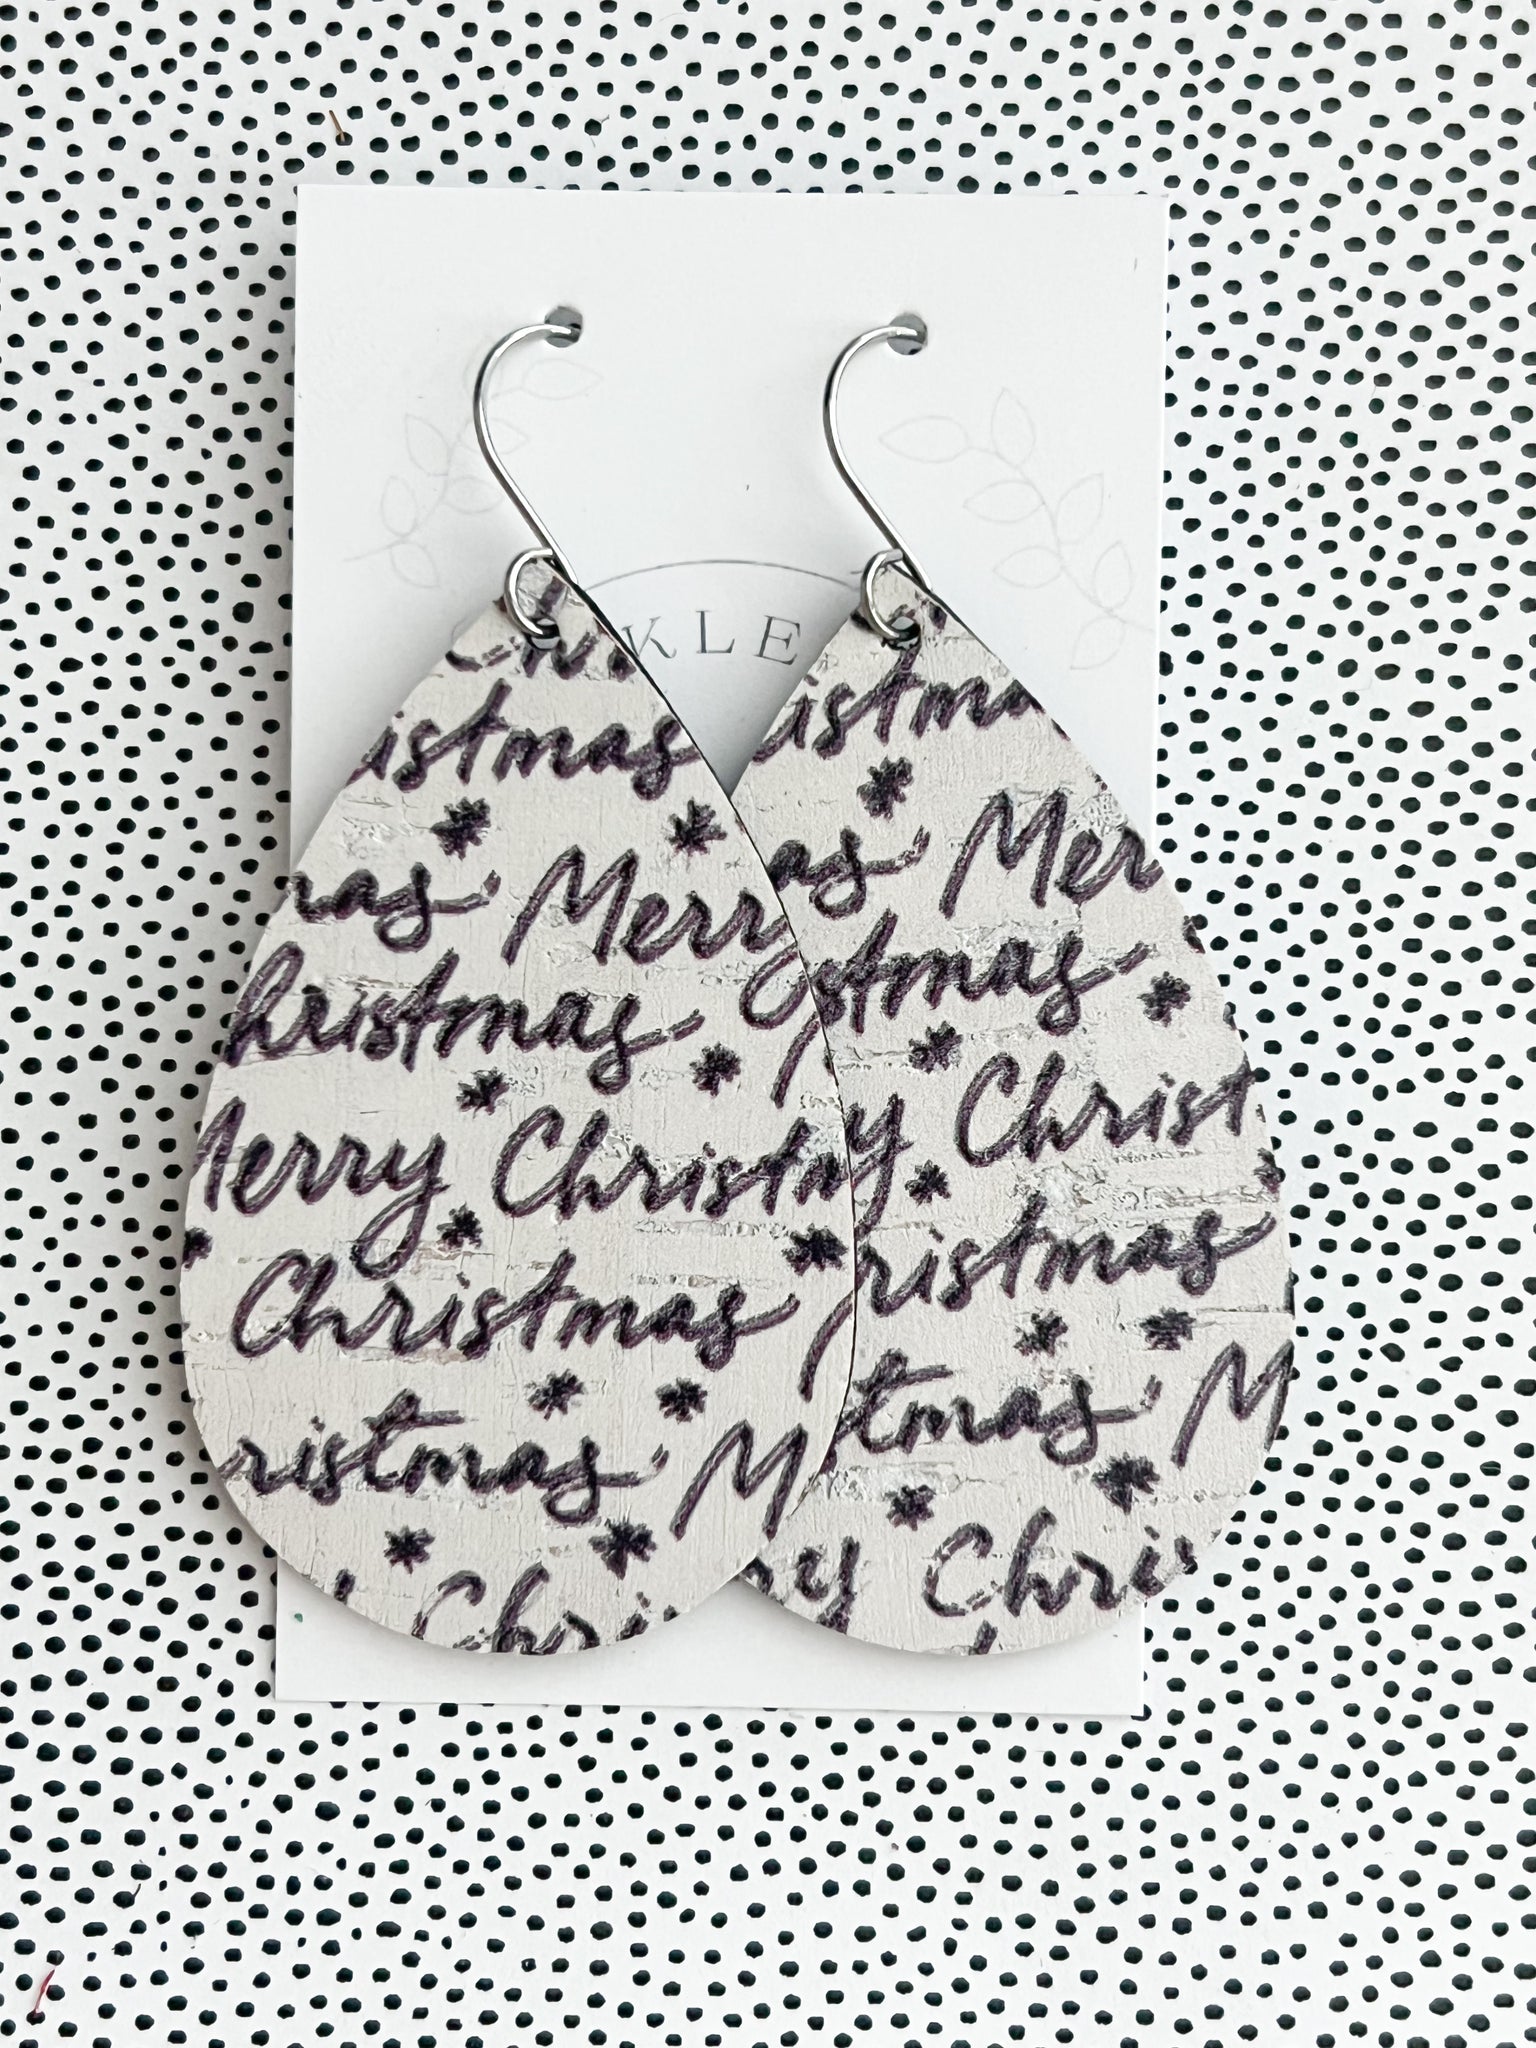 KLE
istmas
as Merry
hristmas
Merry Christm
Christmas
ristmas M
Chri
istma
as Mer
stmas
y Christ
ristmas
tmas M
ry Chris